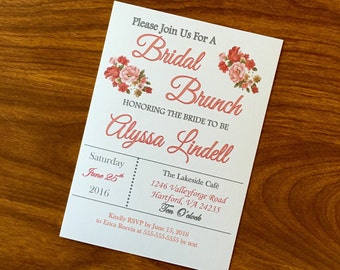 Please Join Us For A
Bridal
Brunch
HONORING THE BRIDE TO BE
Alyssa Lindell
Saturday
June 25th
2016
The Lakeside Café
1246 Valleyforge Road
Hartford, VA 24235
Ten O'clock
Kindly RSVP by June 15, 2016
to Erica Roccia at 555-555-5555 by text